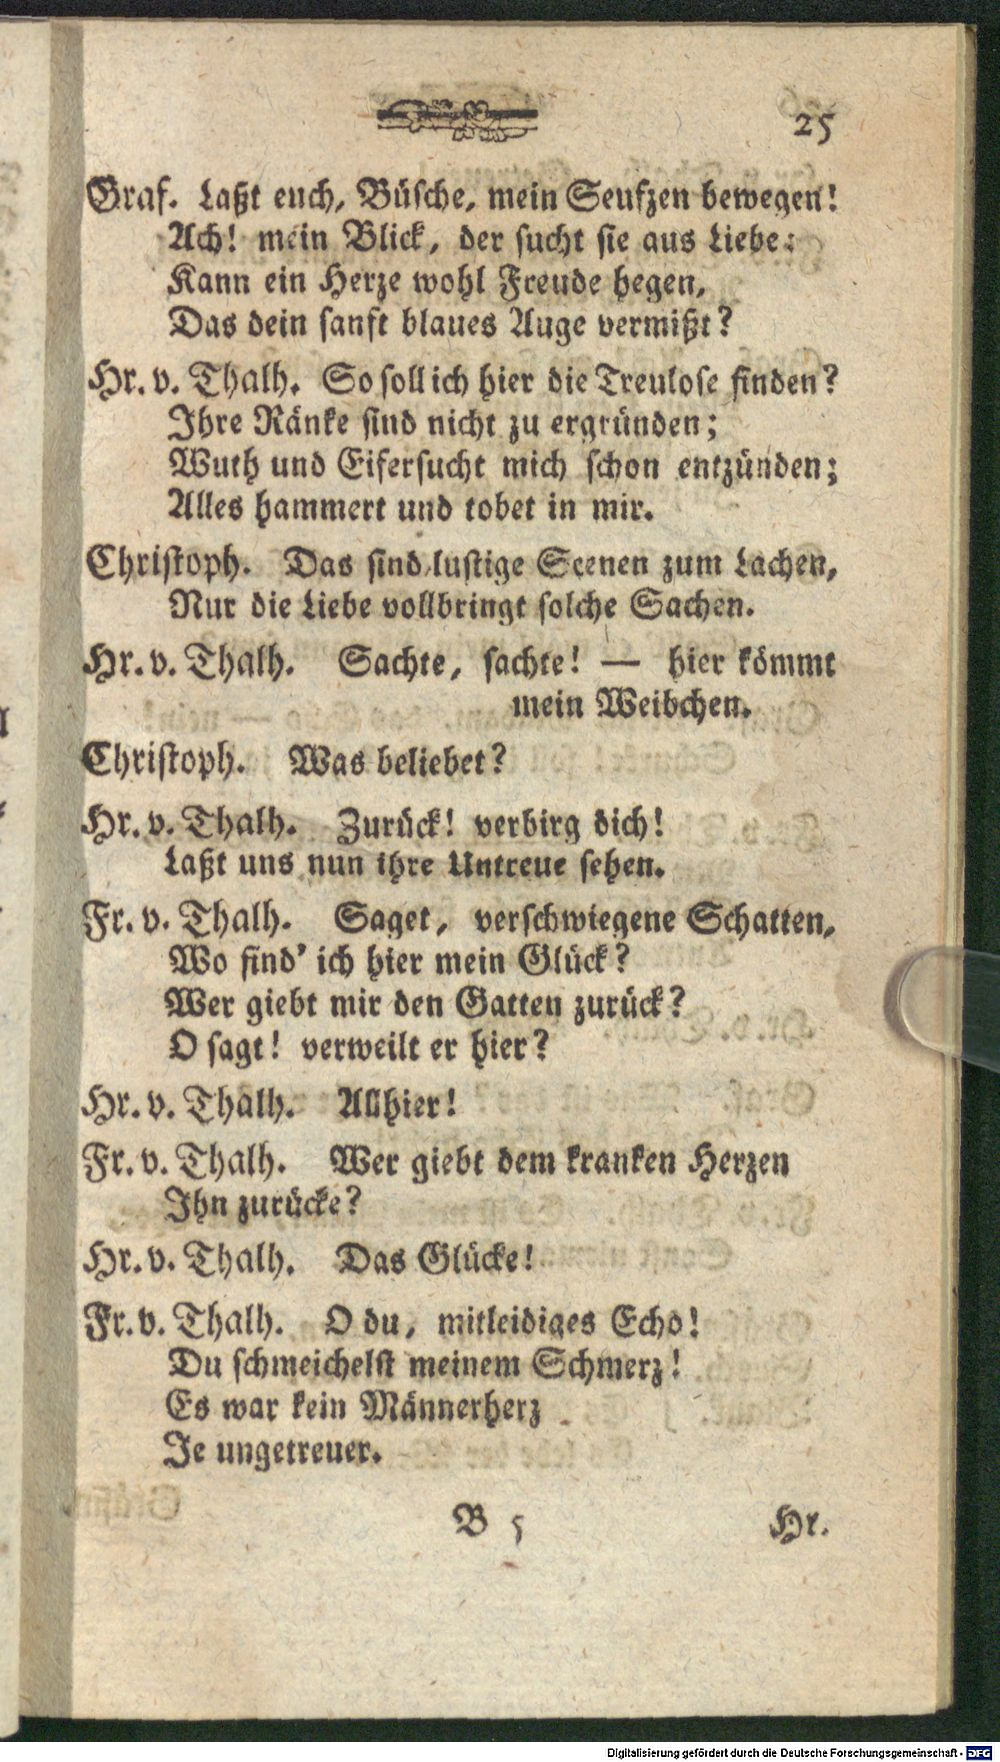 25
Graf. Laßt euch, Büsche, mein Seufzen bewegen!
Ach! mein Blick, der sucht sie aus Liebe:
Kann ein Herze wohl Freude hegen,
Das dein sanft blaues Auge vermißt?
Hr. v. Thalh. So soll ich hier die Treulose finden?
Ihre Ränke sind nicht zu ergründen;
Wuth und Eifersucht mich schon entzünden;
Alles hammert und tobet in mir.
Christoph. Das sind lustige Scenen zum Lachen,
Nur die Liebe vollbringt solche Sachen.
Hr. v. Thalh. Sachte, sachte! — hier kömmt
mein Weibchen.
Christoph. Was beliebet?
Hr. v. Thalh. Zurück! verbirg dich!
Laßt uns nun ihre Untreue sehen.
Fr. v. Thalh. Saget, verschwiegene Schatten,
Wo find' ich hier mein Glück?
Wer giebt mir den Gatten zurück?
O sagt! verweilt er hier?
Hr. v. Thalh. Allhier!
Fr. v. Thalh. Wer giebt dem kranken Herzen
Ihn zurücke?
Hr. v. Thalh. Das Glücke!
Fr. v. Thalh. O du, mitleidiges Echo!
Du schmeichelst meinem Schmerz!
Es war kein Männerherz
Je ungetreuer.
B 5 Hr.
Digitalisierung gefördert durch die Deutsche Forschungsgemeinschaft - DFG